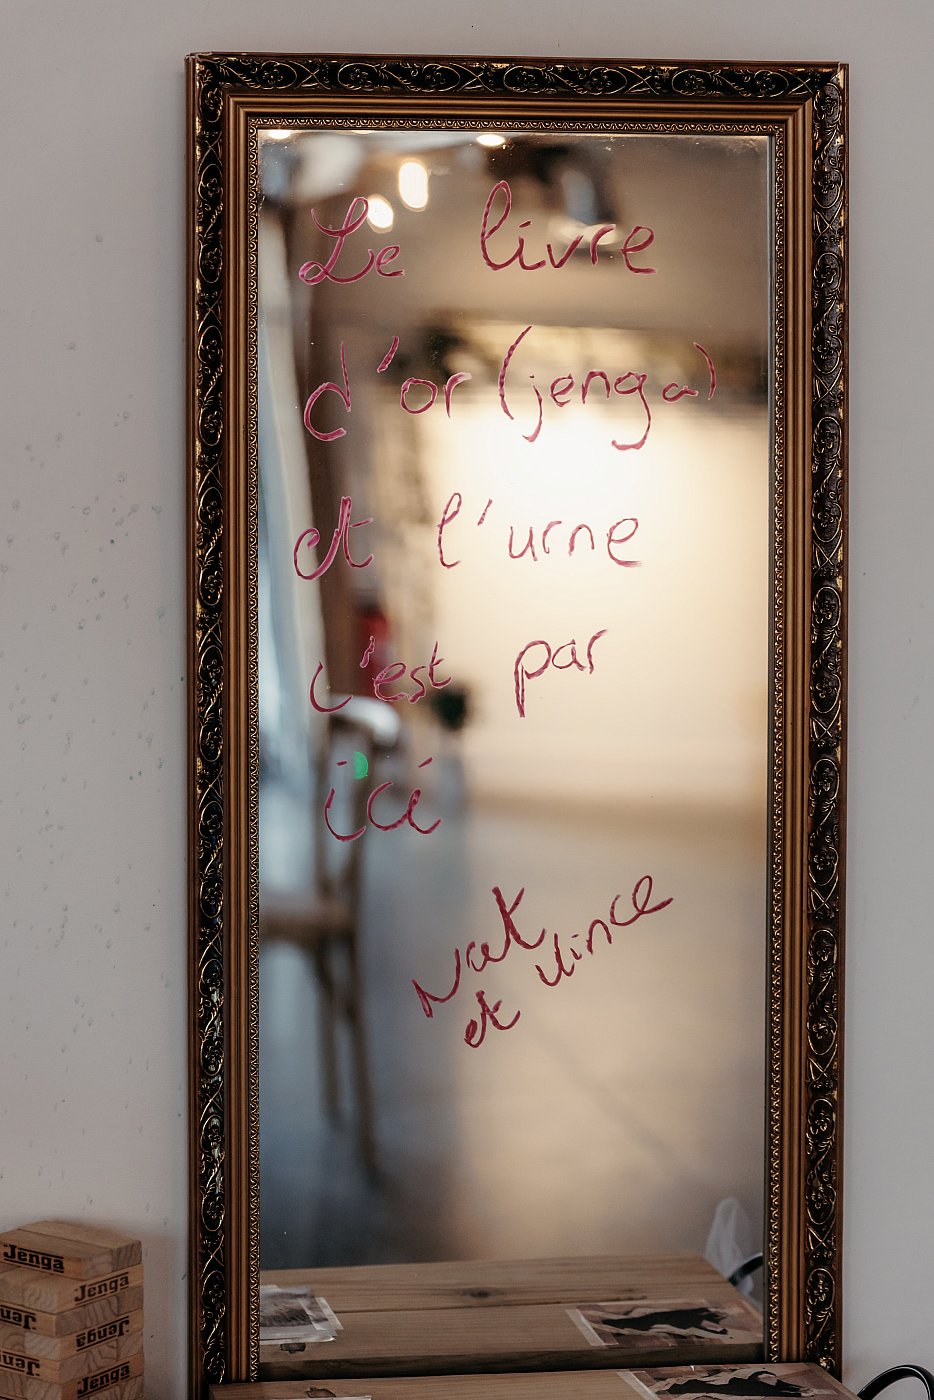 Le livre
d'or (jenga)
et l'urne
c'est par
ici
Nat
et Vince
Jenga
Jenga
Jenga
Jenga
Jenga
Jenga